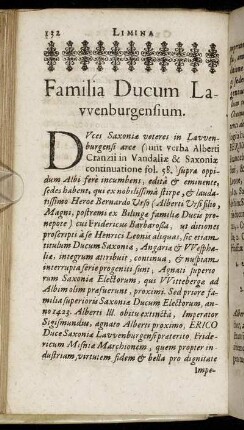 132 LIMINA
Familia Ducum La-
vvenburgensium.
DVces Saxoniæ veteres in Lavven-
burgensi arce (sunt verba Alberti
Crantzii in Vandaliæ & Saxoniæ
continuatione fol. 58.) supra oppi-
dum Albi ferè incumbens, edita & eminente,
sedes habent, qui ex nobilissima stirpe, & lauda-
tissimo Heroe Bernardo Urso (Alberti Ursi filio,
Magni, postremi ex Bilinga familia Ducis pro-
nepote) cui Fridericus Barbarossa, ut ditiones
proscripti à se Henrici Leonis aliquas, sic etiam
titulum Ducum Saxoniæ, Angariæ & Westpha-
liæ, integrum attribuit, continua, & nuspiam
interrupta serie progeniti sunt, Agnati supero-
rum Saxoniæ Electorum, qui Witteberga ad
Albim olim præfuerunt, proximi. Sed priore fa-
milia superioris Saxoniæ Ducum Electorum, an-
no 1423. Alberti III. obitu extincta, Imperator
Sigismundus, agnato Alberti proximo, ERICO
Duce Saxoniæ Lavvenburgensi præterito Frideri-
cum Misniæ Marchionem, quem propter in-
dustriam, virtutem fidem & bella pro dignitate
Impe-